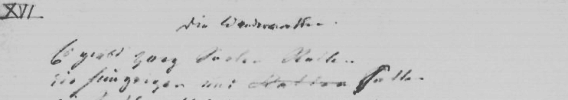 XVI.
Die Wanderratten.
Es giebt zwey Sorten Ratten
die hungrigen und satten